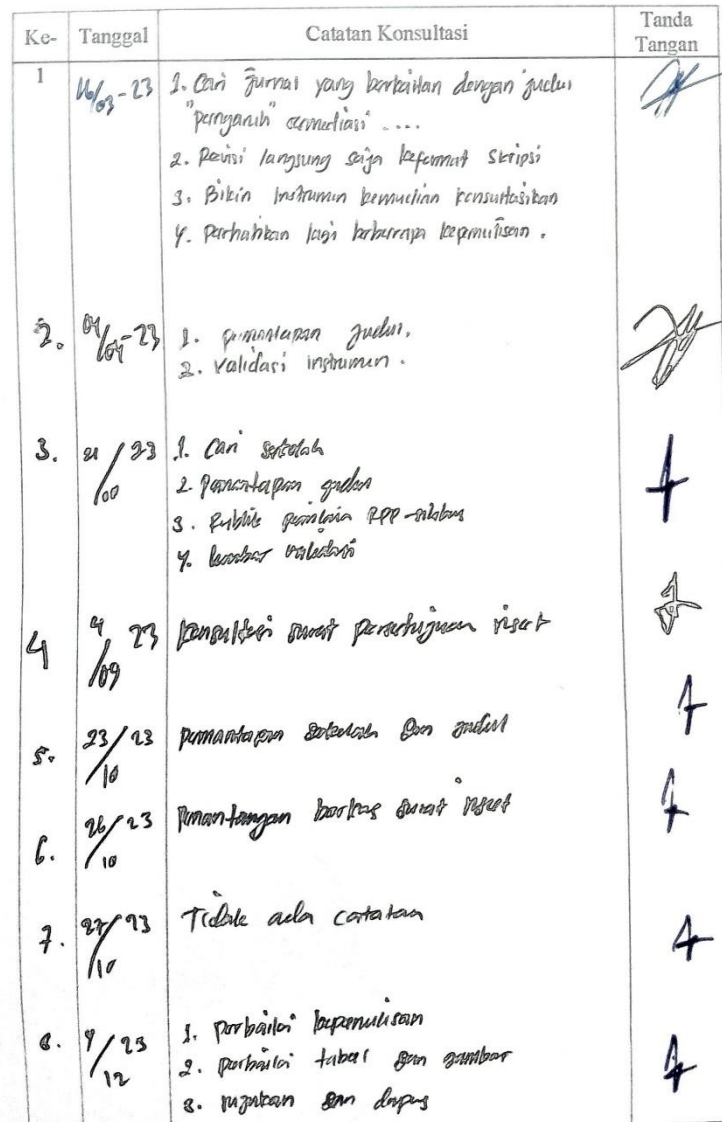 Ke- Tanggal Catatan Konsultasi Tanda Tangan
1 16/03-23 1. Cari Jurnal yang berkaitan dengan judul
"pengaruh" termediasi ....
2. Revisi langsung saja keformat skripsi
3. Bikin Instrumen kemudian konsultasikan
4. Perhatikan lagi beberapa kepenulisan.
2. 04/04-23 1. pemantapan judul.
2. Validasi instrumen.
3. 21/ 23 1. Cari sekolah
2. Pemantapan judul
3. Rublik penilaian RPP-silabus
4. lembar validasi
4 4/09 23 konsultasi surat persetujuan riset
5. 23/10 23 pemantapan sekolah dan judul
6. 26/10 23 berkas surat riset
7. 27/10 23 Tidak ada catatan
8. 23/12 1. perbaiki kepenulisan
2. perbaiki tabel dan gambar
3. rujukan dan dapus